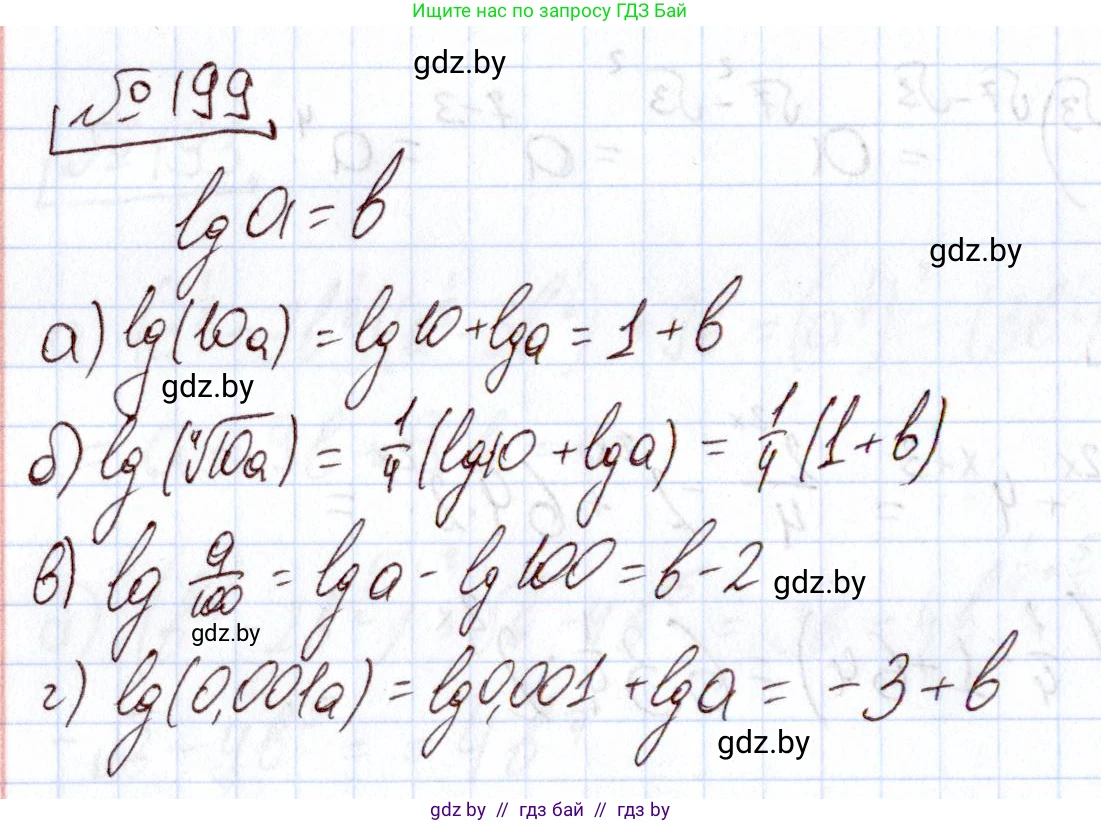 Ищите нас по запросу ГДЗ Бай
gdz.by
№ 199
lg a = b
gdz.by
а) lg(10a) = lg 10 + lg a = 1 + b
gdz.by
б) lg(∜10a) = 1/4 (lg 10 + lg a) = 1/4 (1 + b)
в) lg a/100 = lg a - lg 100 = b - 2
gdz.by
gdz.by
г) lg(0,001a) = lg 0,001 + lg a = -3 + b
gdz.by
gdz by // гдз бай // гдз by